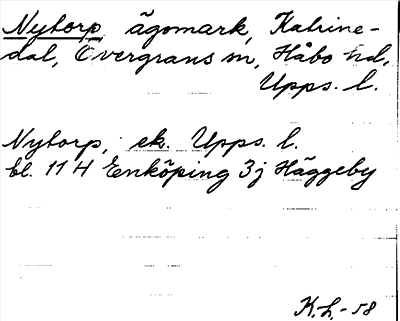 Nytorp, ägomark, Katrine-
dal, Övergrans sn, Håbo hd,
Upps. l.
Nytorp, ek. Upps. l.
bl. 11 H Enköping 3j Häggeby
K.L.-58